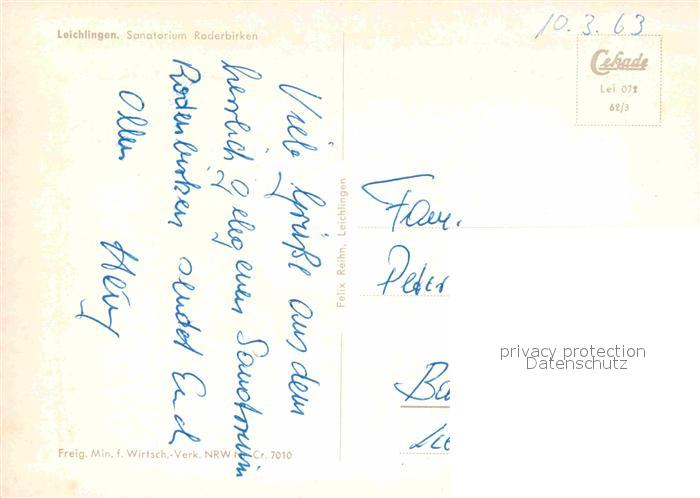 Leichlingen. Sanatorium Roderbirken
10.3.63
Cekade
Lei 072
62/3
Viele Grüße aus dem
herrlich gelegenen Sanatorium
Roderbirken sendet Euch
Allen
Felix Reihn, Leichlingen
Fam.
Peter
Ba
privacy protection
Datenschutz
Freig. Min. f. Wirtsch.-Verk. NRW Nr. Cr. 7010